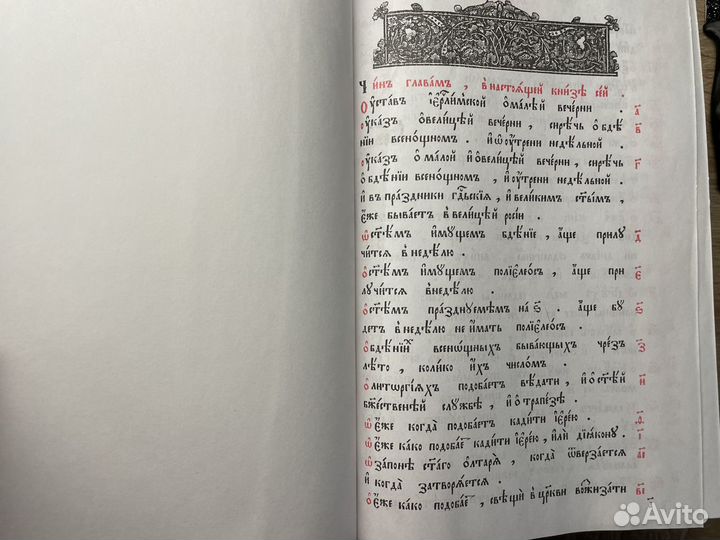 Чи́нъ главáмъ, в҆настоѧ́щей кни́зѣ се́й.
Оу҆ста́въ і҆ерⷭ҇ли́мской ѡ҆ма́лѣй вече́рни. а҃
оу҆ка́зъ ѡ҆вели́цѣй вече́рни, си́рѣчь ѡ҆бдѣ́ в҃
нїи всено́щномъ. и҆ѡ҆оу҆́трени недѣ́льной.
оу҆ка́зъ ѡ҆ ма́лой и҆ѡ҆вели́цѣй вече́рни, си́рѣчь г҃
ѡ҆ бдѣ́нїи всено́щномъ, и҆оу҆́трени недѣ́льной.
и҆ въ пра́здники гдⷭ҇ьскїѧ, и҆вели́кимъ ст҃ы́мъ,
є҆́же быва́етъ в҆вели́цѣй росі́и.
ѡ҆ст҃ѣ́мъ и҆мꙋ́щемъ бдѣ́нїе, а҆́ще прилꙋ д҃
чи́тсѧ в҆недѣ́лю.
ѡ҆ст҃ѣ́мъ и҆мꙋ́щемъ полїеле́осъ, а҆́ще при є҃
лꙋчи́тсѧ в҆недѣ́лю.
ѡ҆ст҃ѣ́мъ пра́зднꙋемѣмъ на ѕ҃. а҆́ще бꙋ ѕ҃
детъ в҆недѣ́лю не и҆́мать полїеле́осъ.
ѡ҆бдѣ́нїиⷯ всено́щныхъ быва́ющихъ чре́зъ з҃
лѣ́то, коли́ко и҆́хъ число́мъ.
ѡ҆литꙋргі́ѧхъ подоба́етъ вѣ́дати, и҆ѡ҆ст҃ѣ́й и҃
бж҃е́ственѣй слꙋ́жбѣ, и҆ ѡ҆трапе́зѣ.
ѡ҆є҆́же когда̀ подоба́етъ кади́ти і҆ере́ю. ѳ҃
ѡ҆є҆́же ка́ко подоба́еⷮ кади́ти і҆ере́ю, и҆лѝ дїа́конꙋ. і҃
ѡ҆запо́нѣ ст҃а́го ѻ҆лтарѧ̀, когда̀ ѿверза́етсѧ а҃і
и҆ когда̀ затворѧ́етсѧ.
ѡ҆є҆́же ка́ко подоба́еⷮ, свѣщѝ в҆цр҃кви вожиза́ти в҃і
Avito